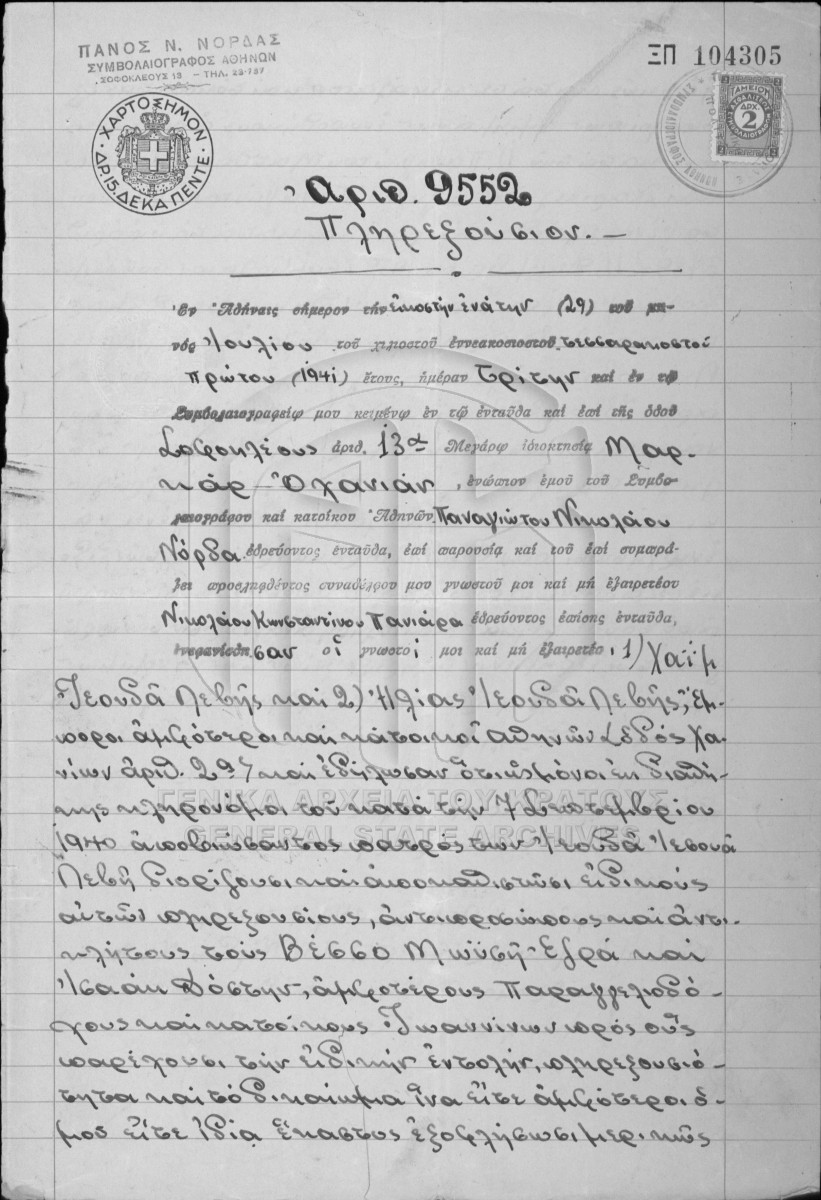 ΠΑΝΟΣ Ν. ΝΟΡΔΑΣ
ΣΥΜΒΟΛΑΙΟΓΡΑΦΟΣ ΑΘΗΝΩΝ
ΣΟΦΟΚΛΕΟΥΣ 13 – ΤΗΛ. 23-737
ΞΠ 104305
ΧΑΡΤΟΣΗΜΟΝ
ΔΡ.15. ΔΕΚΑ ΠΕΝΤΕ
ΤΑΜΕΙΟΝ
ΔΡΧ.
2
Ἀριθ. 9552
Πληρεξούσιον. —
Ἐν Ἀθήναις σήμερον τὴν εἰκοστὴν ἐνάτην (29) τοῦ μη-
νὸς Ἰουλίου τοῦ χιλιοστοῦ ἐννεακοσιοστοῦ τεσσαρακοστοῦ
πρώτου (1941) ἔτους, ἡμέραν Τρίτην καὶ ἐν τῷ
Συμβολαιογραφείῳ μου κειμένῳ ἐν τῷ ἐνταῦθα καὶ ἐπὶ τῆς ὁδοῦ
Σοφοκλέους ἀριθ. 13α Μεγάρῳ ἰδιοκτησίᾳ Μαρ-
κὰρ Ὀχανιάν, ἐνώπιον ἐμοῦ τοῦ Συμβο-
λαιογράφου καὶ κατοίκου Ἀθηνῶν Παναγιώτου Νικολάου
Νόρδα ἑδρεύοντος ἐνταῦθα, ἐπὶ παρουσίᾳ καὶ τοῦ ἐπὶ συμπρά-
ξει προσληφθέντος συναδέλφου μου γνωστοῦ μοι καὶ μὴ ἐξαιρετέου
Νικολάου Κωνσταντίνου Πανιάρα ἑδρεύοντος ἐπίσης ἐνταῦθα,
ἐνεφανίσθησαν οἱ γνωστοί μοι καὶ μὴ ἐξαιρετέοι 1) Χαΐμ
Ἰεουδᾶ Λεβῆς καὶ 2) Ἠλίας Ἰεουδᾶ Λεβῆς, ἔμ-
ποροι ἀμφότεροι καὶ κάτοικοι Ἀθηνῶν (ὁδὸς Χα-
νίων ἀριθ. 29) καὶ ἐδήλωσαν ὅτι ὡς μόνοι ἐκ διαθή-
κης κληρονόμοι τοῦ κατὰ τὴν 7 Σεπτεμβρίου
1940 ἀποβιώσαντος πατρός των Ἰεουδᾶ Ἰεσουᾶ
Λεβῆ διορίζουσι καὶ ἀποκαθιστῶσι εἰδικοὺς
αὐτῶν πληρεξουσίους, ἀντιπροσώπους καὶ ἀντι-
κλήτους τοὺς Βέσσο Μωϋσῆ Ἐζρᾶ καὶ
Ἰσαὰκ Δόστην, ἀμφοτέρους Παραγγελιοδό-
χους καὶ κατοίκους Ἰωαννίνων πρὸς οὓς
παρέχουσι τὴν εἰδικὴν ἐντολήν, πληρεξουσιό-
τητα καὶ τὸ δικαίωμα ἵνα εἴτε ἀμφότεροι ὁ-
μοῦ εἴτε ἰδίᾳ ἕκαστος ἐξοφλήσωσι μερικῶς
ΓΕΝΙΚΑ ΑΡΧΕΙΑ ΤΟΥ ΚΡΑΤΟΥΣ
GENERAL STATE ARCHIVES